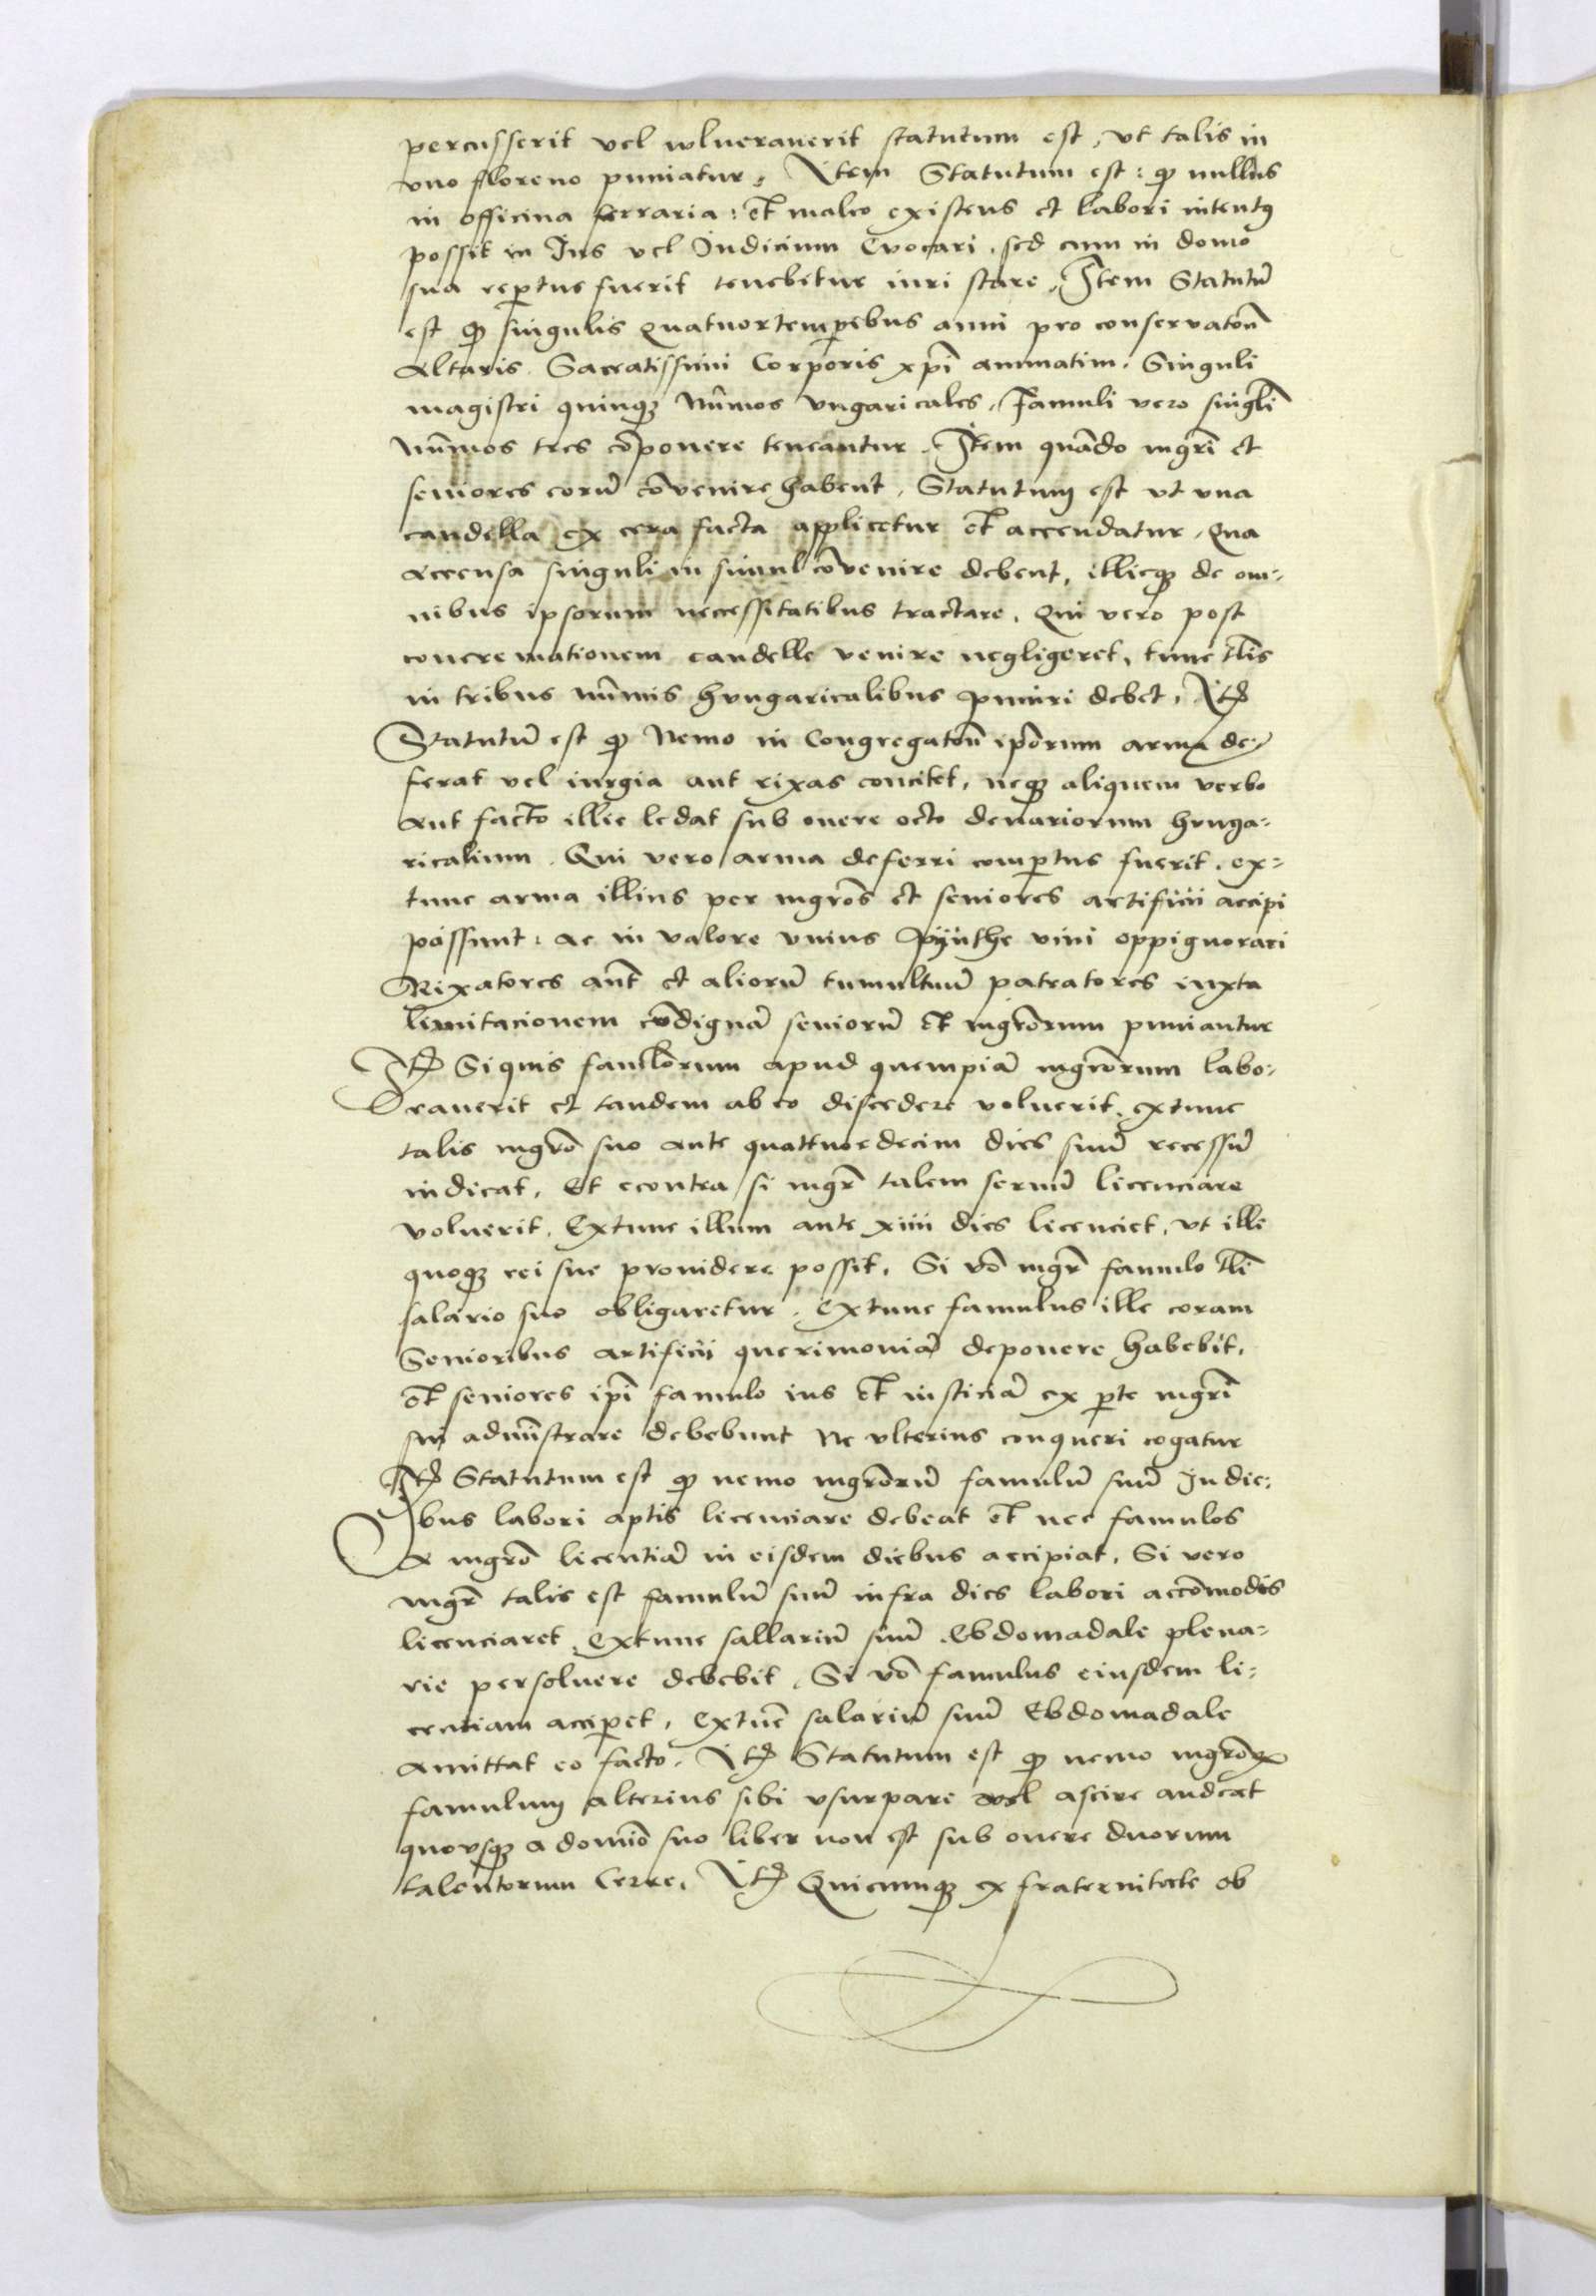 percusserit vel wlneraverit statutum est, vt talis in
vno floreno puniatur. Item Statutum est: ꝙ nullus
in officina ferraria: et̄ maleo existens et labori intentꝰ
possit in Ius vel Iudicium Evocari. sed cum in domo
sua rep̄tus fuerit tenebitur iuri stare. Item Statutū
est ꝙ singulis Quatuortemp̄ebus anni pro conservatōn
Altaris Sacratissimi Corporis xp̄i annuatim. Singuli
magistri quinqꝫ Nūmos vngaricales. Famuli vero singl̄i
Nūmos tres cōponere teneantur. Item quādo mgrī et
seniores eorū cōvenire habent, Statutum est vt vna
candella ex cera facta applicetur et̄ accendatur, Qua
Accensa singuli in simul cōvenire debent, illicqꝫ de om-
nibus ipsorum necessitatibus tractare. Qui vero post
concremationem candelle venire negligeret, tunc tl̄is
in tribus nūmis hungaricalibus puniri debet. Itē
Statutū est ꝙ Nemo in Congregatōn ip̄orum arma de-
ferat vel iurgia aut rixas concitet, neqꝫ aliquem verbo
Aut facto illic ledat sub onere octo denariorum hunga-
ricalium. Qui vero arma deferri comp̄tus fuerit. ex-
tunc arma illius per mgrōs et seniores artificii accipi
possunt: ac in valore vnius pÿnthe vini oppignorari
Rixatores aūt et aliorū tumultuū patratores iuxta
limitacionem cōdignā seniorū et̄ mgrōrum puniantur
Itē Si quis famlōrum apud quempiā mgrōrum labo-
raverit et tandem ab eo discedere voluerit, extunc
talis mgrō suo ante quattuordecim dies suū recessū
indicat. Et econtra si mgr̄ talem servū licenciare
voluerit. Extunc illum ante xiiii dies licenciet, vt ille
quoqꝫ rei sue providere possit. Si vō mgr̄ famulo tl̄i
salario suo obligaretur. Extunc famulus ille coram
Senioribus artificii querimoniā deponere habebit.
et̄ seniores ip̄i famulo ius et̄ iusticiā ex p̄te mgrī
sui admīstrare debebunt Ne vlterius conqueri cogatur
Itē Statutum est ꝙ nemo mgrōrū famulū suū In die-
bus labori aptis licenciare debeat et̄ nec famulos
A mgrō licentiā in eisdem diebus accipiat. Si vero
mgr̄ talis est famulū suū infra dies labori accōmodis
licenciaret, Extunc sallariū suū Ebdomadale plena-
rie persolvere debebit. Si vō famulus eiusdem li-
cenciam accip̄et, Extūc salariū suū Ebdomadale
Amittat eo facto. Itē Statutum est ꝙ nemo mgrōꝝ
famulum alterius sibi vsurpare vel ascire audeat
quousqꝫ a domīo suo liber non est sub onere duorum
talentorum Cerre. Itē Quicumqꝫ ex fraternitate ob